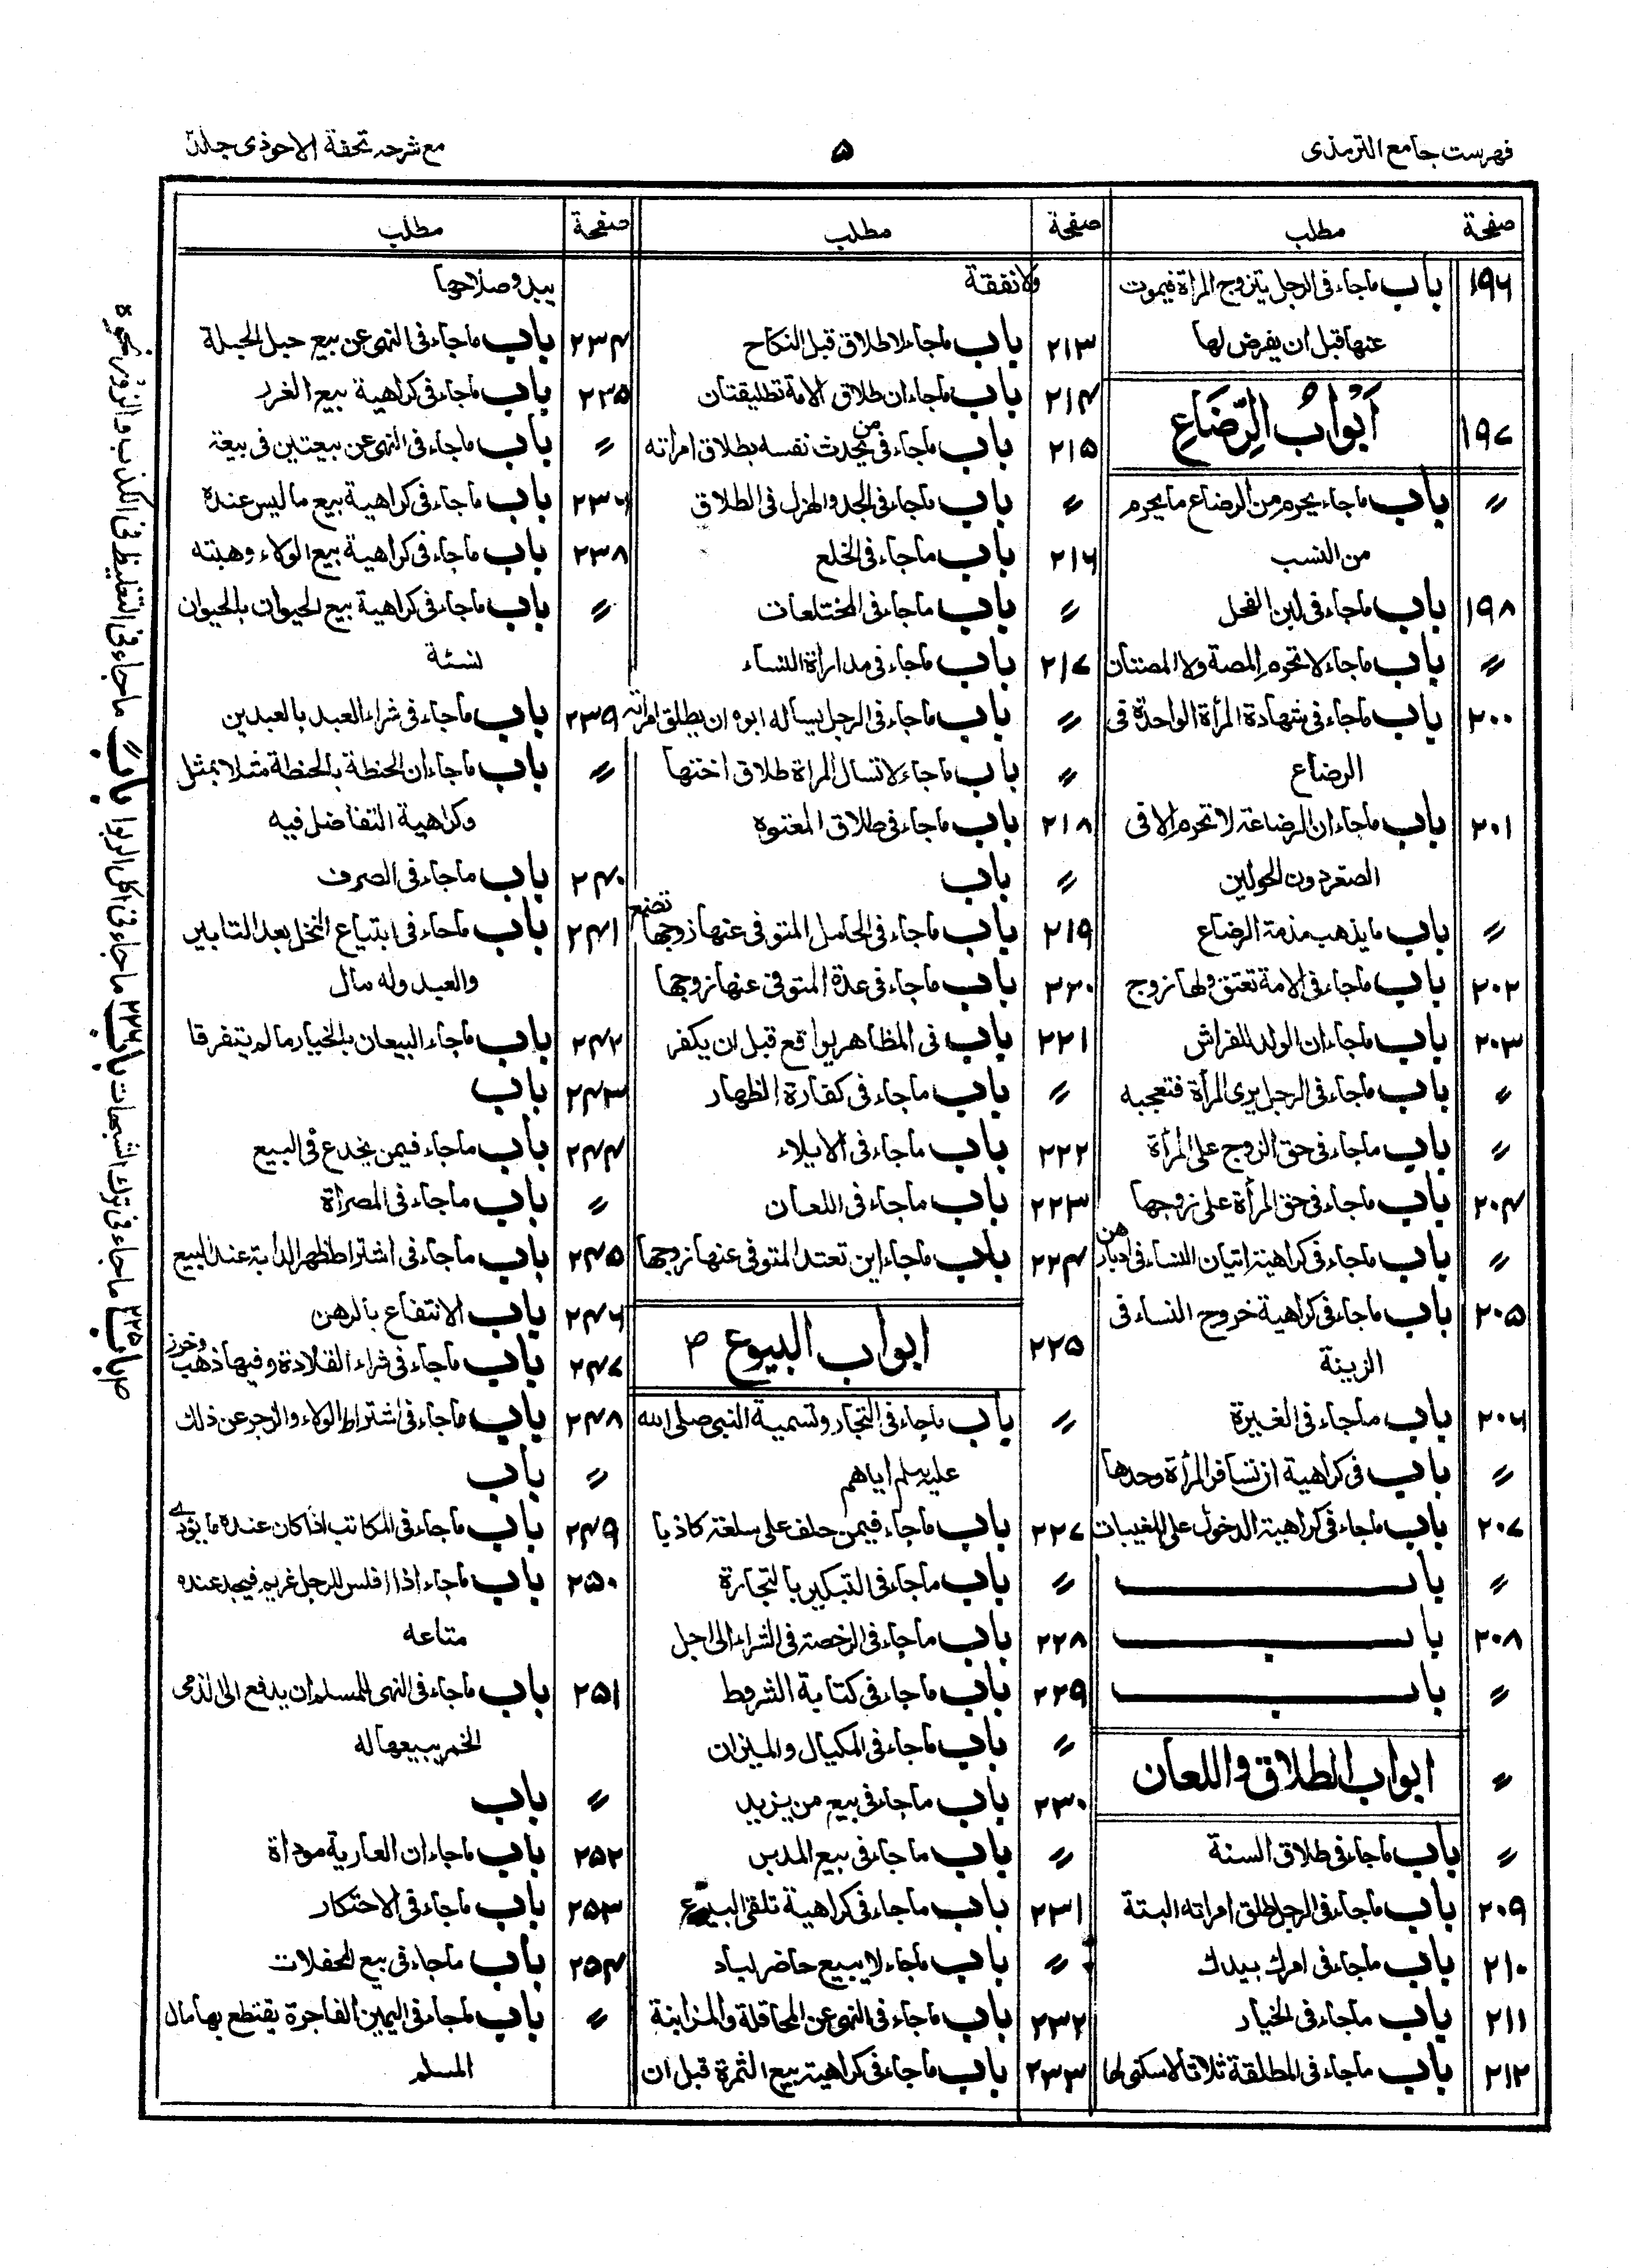 فهرست جامع الترمذى
۵
مع شرحه تحفة الاحوذى جلد۲
صفحة مطلب
۱۹۶ باب ماجاء فى الرجل يتزوج المرأة فيموت
عنها قبل ان يفرض لها
۱۹۷ أَبْوابُ الرِّضَاعِ
〃 باب ماجاء يحرم من الرضاع مايحرم
من النسب
۱۹۸ باب ماجاء فى لبن الفحل
〃 باب ماجاء لاتحرم المصة ولا المصتان
۲۰۰ باب ماجاء فى شهادة المرأة الواحدة فى
الرضاع
۲۰۱ باب ماجاء ان الرضاعة لاتحرم الا فى
الصغر دون الحولين
〃 باب مايذهب مذمة الرضاع
۲۰۲ باب ماجاء فى الامة تعتق ولها زوج
۲۰۳ باب ماجاء ان الولد للفراش
〃 باب ماجاء فى الرجل يرى المرأة فتعجبه
〃 باب ماجاء فى حق الزوج على المرأة
۲۰۴ باب ماجاء فى حق المرأة على زوجها
〃 باب ماجاء فى كراهية اتيان النساء فى ادبارهن
۲۰۵ باب ماجاء فى كراهية خروج النساء فى
الزينة
۲۰۶ باب ماجاء فى الغيرة
〃 باب فى كراهية ان تسافر المرأة وحدها
۲۰۷ باب ماجاء فى كراهية الدخول على المغيبات
〃 باب
۲۰۸ باب
〃 باب
〃 ابواب الطلاق واللعان
〃 باب ماجاء فى طلاق السنة
۲۰۹ باب ماجاء فى الرجل طلق امراته البتة
۲۱۰ باب ماجاء فى امرك بيدك
۲۱۱ باب ماجاء فى الخيار
۲۱۲ باب ماجاء فى المطلقة ثلاثا لاسكنى لها
صفحة مطلب
ولا نفقة
۲۱۳ باب ماجاء لاطلاق قبل النكاح
۲۱۴ باب ماجاء ان طلاق الامة تطليقتان
۲۱۵ باب ماجاء فى من يحدث نفسه بطلاق امراته
〃 باب ماجاء فى الجد والهزل فى الطلاق
۲۱۶ باب ماجاء فى الخلع
〃 باب ماجاء فى المختلعات
۲۱۷ باب ماجاء فى مداراة النساء
〃 باب ماجاء فى الرجل يسأله ابوه ان يطلق امراته
〃 باب ماجاء لاتسال المراة طلاق اختها
۲۱۸ باب ماجاء فى طلاق المعتوه
〃 باب
۲۱۹ باب ماجاء فى الحامل المتوفى عنها زوجها تضع
۲۲۰ باب ماجاء فى عدة المتوفى عنها زوجها
۲۲۱ باب فى المظاهر يواقع قبل ان يكفر
〃 باب ماجاء فى كفارة الظهار
۲۲۲ باب ماجاء فى الايلاء
۲۲۳ باب ماجاء فى اللعان
۲۲۴ باب ماجاء اين تعتد المتوفى عنها زوجها
۲۲۵ ابواب البيوع ۳
〃 باب ماجاء فى التجار وتسمية النبى صلى الله
عليه وسلم اياهم
۲۲۷ باب ماجاء فيمن حلف على سلعته كاذبا
〃 باب ماجاء فى التبكير بالتجارة
۲۲۸ باب ماجاء فى الرخصة فى الشراء الى اجل
۲۲۹ باب ماجاء فى كتابة الشروط
〃 باب ماجاء فى المكيال والميزان
۲۳۰ باب ماجاء فى بيع من يزيد
〃 باب ماجاء فى بيع المدبر
۲۳۱ باب ماجاء فى كراهية تلقى البيوع
〃 باب ماجاء لايبيع حاضر لباد
۲۳۲ باب ماجاء فى النهى عن المحاقلة والمزابنة
۲۳۳ باب ماجاء فى كراهية بيع الثمرة قبل ان
صفحة مطلب
يبدو صلاحها
۲۳۴ باب ماجاء فى النهى عن بيع حبل الحبلة
۲۳۵ باب ماجاء فى كراهية بيع الغرر
〃 باب ماجاء فى النهى عن بيعتين فى بيعة
۲۳۶ باب ماجاء فى كراهية بيع ماليس عنده
۲۳۸ باب ماجاء فى كراهية بيع الولاء وهبته
〃 باب ماجاء فى كراهية بيع الحيوان بالحيوان
نسئة
۲۳۹ باب ماجاء فى شراء العبد بالعبدين
〃 باب ماجاء ان الحنطة بالحنطة مثلا بمثل
وكراهية التفاضل فيه
۲۴۰ باب ماجاء فى الصرف
۲۴۱ باب ماجاء فى ابتياع النخل بعد التابير
والعبد وله مال
۲۴۲ باب ماجاء البيعان بالخيار مالم يتفرقا
۲۴۳ باب
۲۴۴ باب ماجاء فيمن يخدع فى البيع
〃 باب ماجاء فى المصراة
۲۴۵ باب ماجاء فى اشتراط ظهر الدابة عند البيع
۲۴۶ باب الانتفاع بالرهن
۲۴۷ باب ماجاء فى شراء القلادة وفيها ذهب وخرز
۲۴۸ باب ماجاء فى اشتراط الولاء والزجر عن ذلك
〃 باب
۲۴۹ باب ماجاء فى المكاتب اذا كان عنده مايؤدى
۲۵۰ باب ماجاء اذا افلس للرجل غريم فيجد عنده
متاعه
۲۵۱ باب ماجاء فى النهى للمسلم ان يدفع الى الذمى
الخمر يبيعها له
〃 باب
۲۵۲ باب ماجاء ان العارية موداة
۲۵۳ باب ماجاء فى الاحتكار
۲۵۴ باب ماجاء فى بيع المحفلات
〃 باب ماجاء فى اليمين الفاجرة يقتطع بها مال
المسلم
۳ باب ۲۲۵ ماجاء فى ترك الشبهات باب ۲۲۶ ماجاء فى اكل الربوا باب 〃 ماجاء فى التغليظ فى الكذب والزور ونحوه